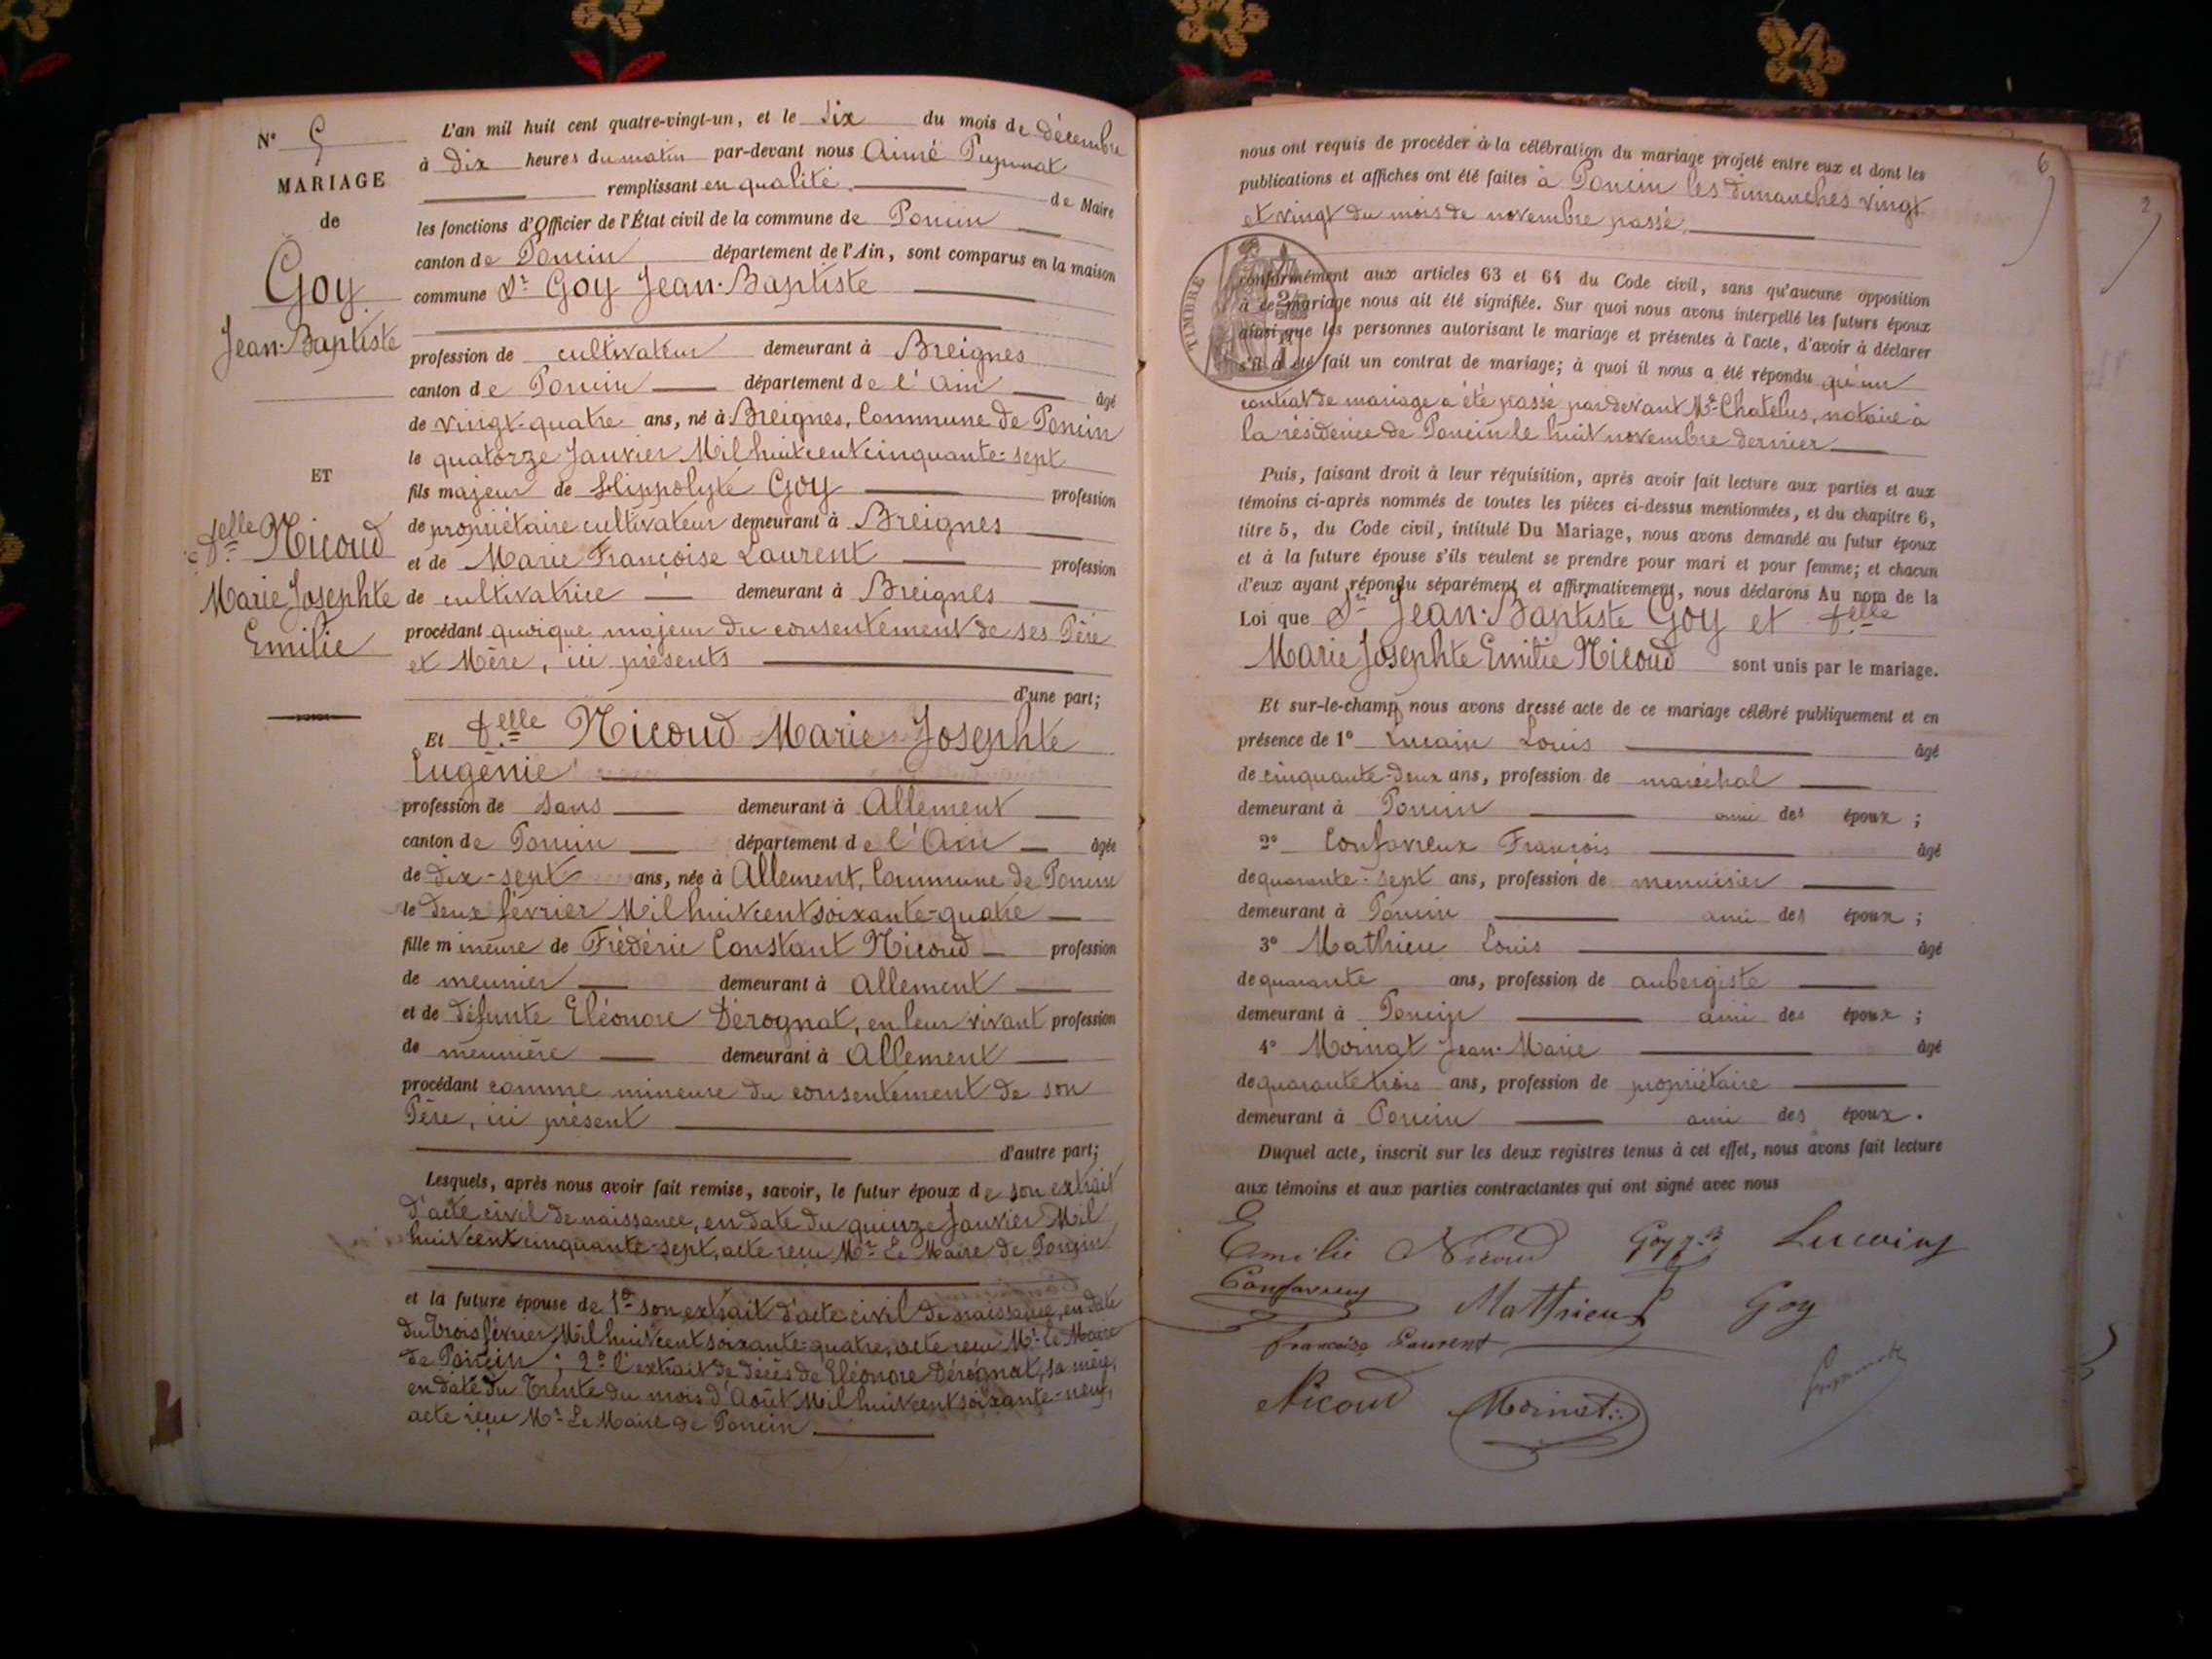 N° 5
MARIAGE
de
Goy
Jean-Baptiste
ET
Delle Nicoud
Marie Josephte
Emilie
L'an mil huit cent quatre-vingt-un, et le six du mois de décembre
à dix heures du matin par-devant nous Aimé
remplissant en qualité de Maire
les fonctions d'Officier de l'État civil de la commune de Poncin
canton de Poncin département de l'Ain, sont comparus en la maison
commune Sr Goy Jean-Baptiste
profession de cultivateur demeurant à Breignes
canton de Poncin département de l'Ain âgé
de vingt-quatre ans, né à Breignes, Commune de Poncin
le quatorze Janvier Mil huit cent cinquante-sept
fils majeur de Hippolyte Goy profession
de propriétaire cultivateur demeurant à Breignes
et de Marie Françoise Laurent profession
de cultivatrice demeurant à Breignes
procédant quoique majeur du consentement de ses Père
et Mère, ici présents
d'une part;
Et Delle Nicoud Marie Josephte
Eugénie
profession de sans demeurant à Allement
canton de Poncin département de l'Ain âgée
de dix-sept ans, née à Allement, Commune de Poncin
le deux février Mil huit cent soixante-quatre
fille mineure de Frédéric Constant Nicoud profession
de meunier demeurant à Allement
et de défunte Eléonore Dérognat, en leur vivant profession
de meunière demeurant à Allement
procédant comme mineure du consentement de son
Père, ici présent
d'autre part;
Lesquels, après nous avoir fait remise, savoir, le futur époux de son extrait
d'acte civil de naissance, en date du quinze Janvier Mil
huit cent cinquante-sept, acte reçu Mr Le Maire de Poncin
et la future épouse de 1° son extrait d'acte civil de naissance, en date
du trois février Mil huit cent soixante-quatre, acte reçu Mr Le Maire
de Poncin; 2° l'extrait de décès de Eléonore Dérognat, sa mère,
en date du trente du mois d'Août Mil huit cent soixante-neuf,
acte reçu Mr Le Maire de Poncin.
6
2
nous ont requis de procéder à la célébration du mariage projeté entre eux et dont les
publications et affiches ont été faites à Poncin les dimanches vingt
et vingt du mois de novembre passé.
TIMBRE
conformément aux articles 63 et 64 du Code civil, sans qu'aucune opposition
à ce mariage nous ait été signifiée. Sur quoi nous avons interpellé les futurs époux
ainsi que les personnes autorisant le mariage et présentes à l'acte, d'avoir à déclarer
s'il a été fait un contrat de mariage; à quoi il nous a été répondu qu'un
contrat de mariage a été passé par devant Me Chatelus, notaire à
la résidence de Poncin le huit novembre dernier
Puis, faisant droit à leur réquisition, après avoir fait lecture aux parties et aux
témoins ci-après nommés de toutes les pièces ci-dessus mentionnées, et du chapitre 6,
titre 5, du Code civil, intitulé Du Mariage, nous avons demandé au futur époux
et à la future épouse s'ils veulent se prendre pour mari et pour femme; et chacun
d'eux ayant répondu séparément et affirmativement, nous déclarons Au nom de la
Loi que Sr Jean-Baptiste Goy et Delle
Marie Josephte Emilie Nicoud sont unis par le mariage.
Et sur-le-champ nous avons dressé acte de ce mariage célébré publiquement et en
présence de 1° Lucain Louis âgé
de cinquante-deux ans, profession de maréchal
demeurant à Poncin ami des époux;
2° Confavreux François âgé
de quarante-sept ans, profession de menuisier
demeurant à Poncin ami des époux;
3° Mathieu Louis âgé
de quarante ans, profession de aubergiste
demeurant à Poncin ami des époux;
4° Moinat Jean-Marie âgé
de quarante trois ans, profession de propriétaire
demeurant à Poncin ami des époux.
Duquel acte, inscrit sur les deux registres tenus à cet effet, nous avons fait lecture
aux témoins et aux parties contractantes qui ont signé avec nous
Emilie Nicoud Goy
Confavreux Mathieu Goy
françoise Laurent
Nicoud Moinat